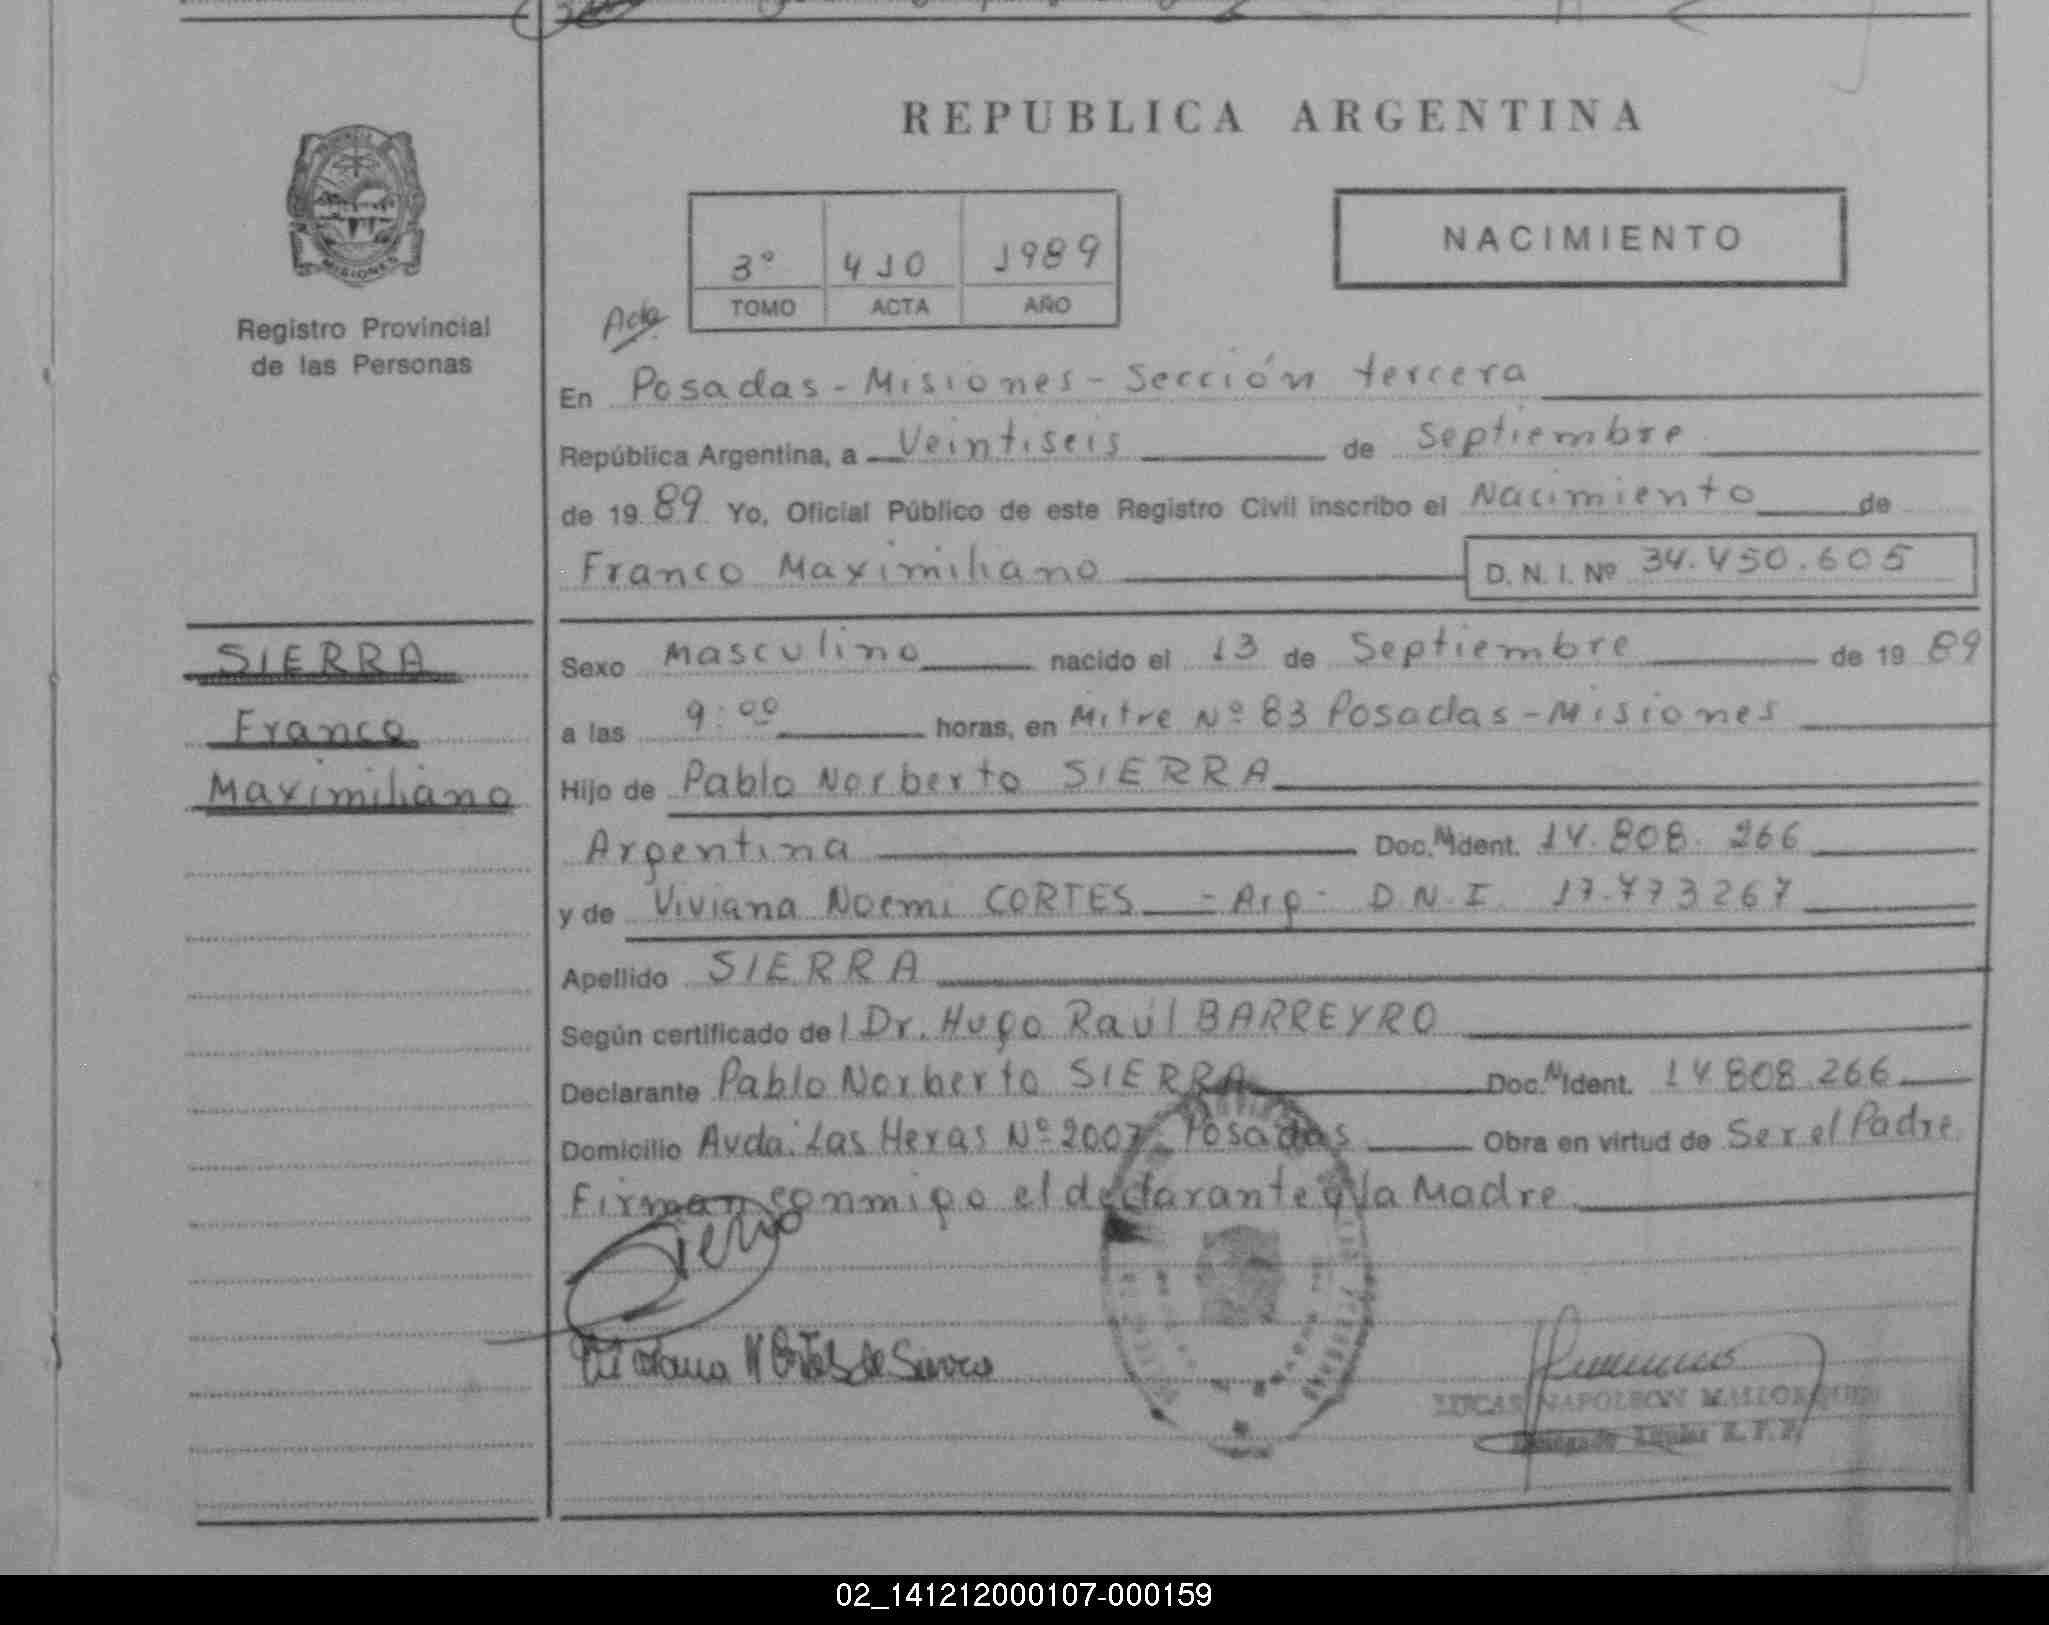 REPUBLICA ARGENTINA
MISIONES
Registro Provincial
de las Personas
3º 410 1989
TOMO ACTA AÑO
NACIMIENTO
Acta
En Posadas - Misiones - Sección tercera
República Argentina, a Veintiseis de Septiembre
de 19 89 Yo, Oficial Público de este Registro Civil inscribo el Nacimiento de
Franco Maximiliano D. N. I. Nº 34.450.605
SIERRA
Franco
Maximiliano
Sexo Masculino nacido el 13 de Septiembre de 19 89
a las 9:00 horas, en Mitre Nº 83 Posadas - Misiones
Hijo de Pablo Norberto SIERRA
Argentina Doc. Ident. 14.808.266
y de Viviana Noemi CORTES - Arg - D.N.I. 17.773267
Apellido SIERRA
Según certificado del Dr. Hugo Raúl BARREYRO
Declarante Pablo Norberto SIERRA Doc. Ident. 14808.266
Domicilio Avda. Las Heras Nº 2007 Posadas Obra en virtud de Ser el Padre
Firman conmigo el declarante y la Madre
Viviana N Cortes de Sierra
LUCAS NAPOLEON
Titular R. P. P.
02_141212000107-000159